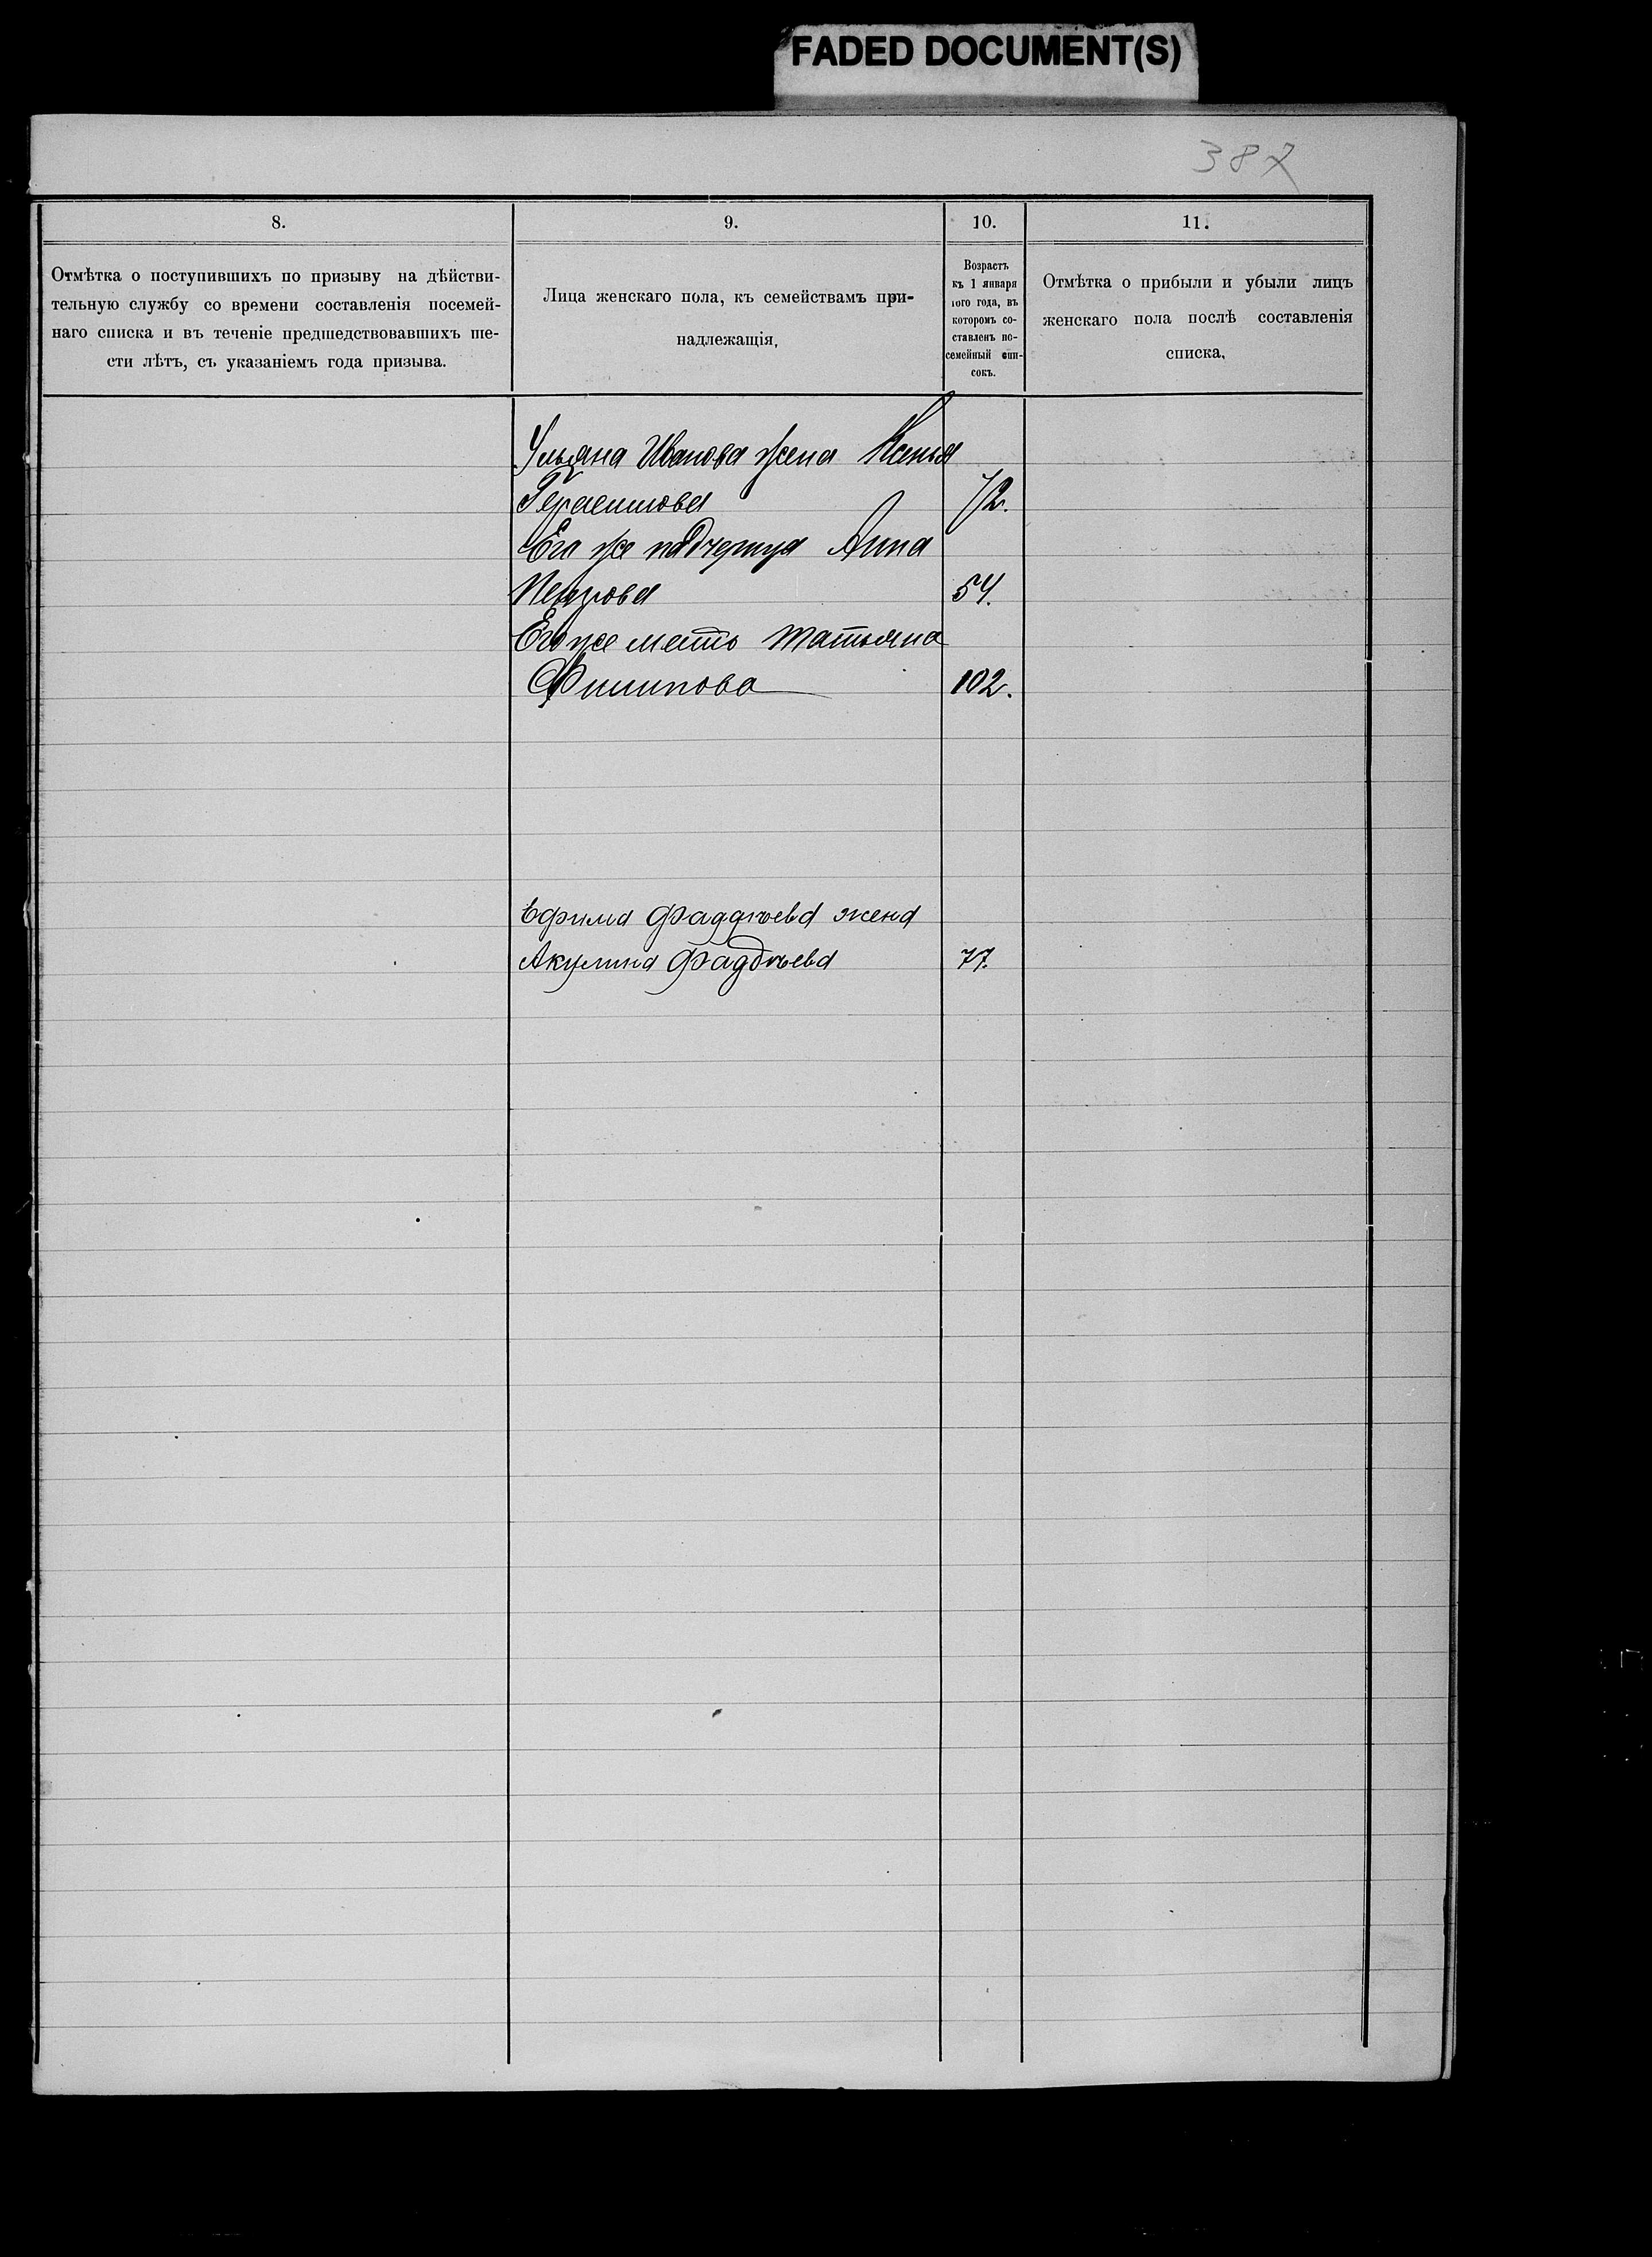 FADED DOCUMENT(S)
387
8.
Отмѣтка о поступившихъ по призыву на дѣйстви-
тельную службу со времени составленія посемей-
наго списка и въ теченіе предшедствовавшихъ ше-
сти лѣтъ, съ указаніемъ года призыва.
9.
Лица женскаго пола, къ семействамъ при-
надлежащія,
10.
Возрастъ
къ 1 января
того года, въ
которомъ со-
ставленъ по-
семейный спи-
сокъ.
11.
Отмѣтка о прибыли и убыли лицъ
женскаго пола послѣ составленія
списка,
Ульяна Иванова жена Ксенья
Герасимова 72.
Его же падчерица Анна
Петрова 54.
Его же мать Татьяна
Филипова 102.
Ефима Фаддѣева жена
Акулина Фаддѣева 77.